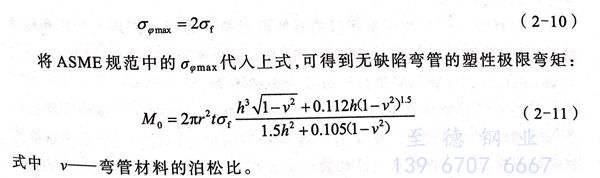 σφmax = 2σf (2-10)
将 ASME 规范中的 σφmax代入上式,可得到无缺陷弯管的塑性极限弯矩:
M₀ = 2πr²tσf (h³√(1-ν²) + 0.112h(1-ν²)^1.5) / (1.5h² + 0.105(1-ν²)) (2-11)
至德钢业
139 6707 6667
式中 ν——弯管材料的泊松比。